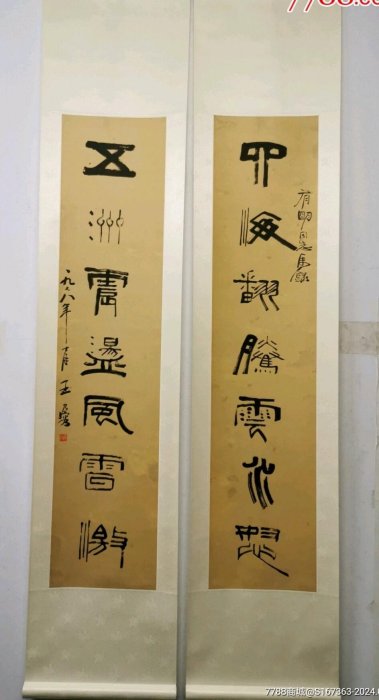 7788.co
四海翻騰雲水怒
有明同志
五洲震盪風雷激
一九六八年
7788商城@S167363-2024